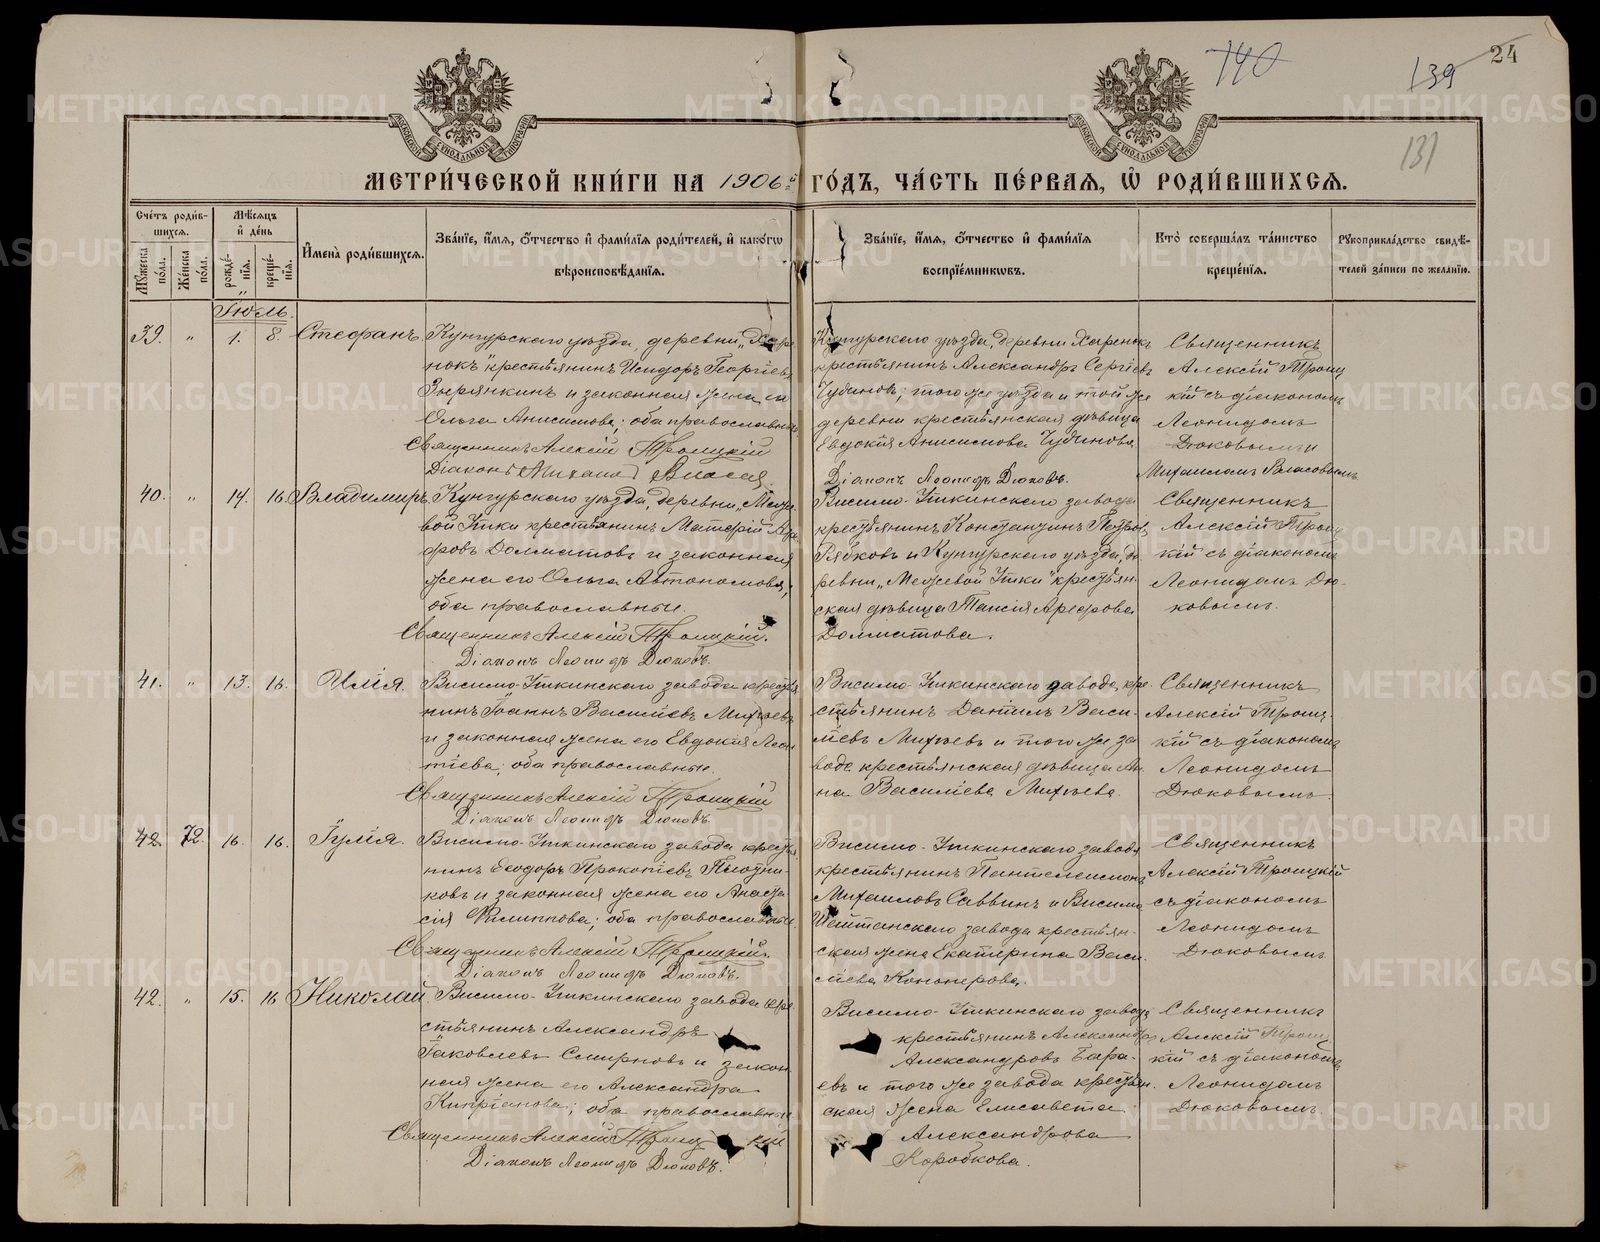 140
139
24
131
МЕТРИ́ЧЕСКОЙ КНИ́ГИ НА 1906й ГО́ДЪ, ЧА́СТЬ ПЕ́РВАЯ, Ѽ РОДИ́ВШИХСЯ.
Сче́тъ роди́вшихся.
Мꙋжеска по́ла.
Же́нска по́ла.
Мѣ́сяцъ и҆ де́нь
рожде́нїя.
креще́нїя.
И҆мена̀ роди́вшихся.
Зва́нїе, и҆́мя, ѻ҆́тчество и҆ фами́лїя роди́телей, и҆ како́гѡ вѣроисповѣ́данїя.
Зва́нїе, и҆́мя, ѻ҆́тчество и҆ фами́лїя воспрїе́мникѡвъ.
Кто̀ соверша́лъ та́инство креще́нїя.
Рꙋкоприкла́дство свидѣ́телей за́писи по жела́нїю.
Іюль.
39. " 1. 8. Стефанъ
Кунгурскаго уѣзда, деревни „Харе
нокъ" крестьянинъ Исидоръ Георгіевъ
Зырянкинъ и законная жена его
Ольга Анисимова; оба православные
Священникъ Алексій Троицкій
Діаконъ Михаил Власов
Кунгурскаго уѣзда, деревни Харенокъ
крестьянинъ Александръ Сергіевъ
Чудиновъ; того же уѣзда и той же
деревни крестьянская дѣвица
Евдокія Анисимова Чудинова
Діаконъ Леонидъ Дюковъ.
Священникъ
Алексій Троиц
кій съ діакономъ
Леонидомъ
Дюковымъ и
Михаиломъ Власовымъ
40. " 14. 16. Владимиръ
Кунгурскаго уѣзда, деревни „Меже
вой Утки крестьянинъ Матѳій Аре
фровъ Долматовъ и законная
жена его Ольга Автономова;
оба православные.
Священникъ Алексій Троицкій.
Діаконъ Леонидъ Дюковъ.
Висимо-Уткинскаго завода
крестьянинъ Константинъ Петровъ
Рябковъ и Кунгурскаго уѣзда, де
ревни „Межевой Утки" крестьян-
ская дѣвица Таисія Арефрова
Долматова.
Священникъ
Алексій Троиц
кій съ діакономъ
Леонидомъ Дю-
ковымъ.
41. " 13. 16. Илія.
Висимо-Уткинскаго завода крестья
нинъ Іоаннъ Василіевъ Михѣевъ
и законная жена его Евдокія Леон
тіева; оба православные.
Священникъ Алексій Троицкій
Діаконъ Леонидъ Дюковъ.
Висимо-Уткинскаго завода кре-
стьянинъ Даніилъ Васи-
ліевъ Михѣевъ и того же за
вода крестьянская дѣвица Ан
на Василіева Михѣева.
Священникъ
Алексій Троиц-
кій съ діакономъ
Леонидомъ
Дюковымъ.
42. 72. 16. 16. Іулія.
Висимо-Уткинскаго завода крестья
нинъ Ѳеодоръ Прокопіевъ Плотни-
ковъ и законная жена его Анаста
сія Филиппова; оба православные.
Священникъ Алексій Троицкій.
Діаконъ Леонидъ Дюковъ.
Висимо-Уткинскаго завода
крестьянинъ Пантелеимонъ
Михаиловъ Саввинъ и Висимо
Шайтанскаго завода крестьян-
ская жена Екатерина Васи-
ліева Кононерова.
Священникъ
Алексій Троицкій
съ діакономъ
Леонидомъ
Дюковымъ
42. " 15. 16 Николай
Висимо-Уткинскаго завода кре-
стьянинъ Александръ
Іаковлевъ Смирновъ и закон
ная жена его Александра
Кипріанова; оба православные
Священникъ Алексій Троицкій
Діаконъ Леонидъ Дюковъ.
Висимо-Уткинскаго завода
крестьянинъ Александръ
Александровъ Бара-
евъ и того же завода крестьян-
ская жена Елисавета
Александрова
Коробкова.
Священникъ
Алексій Троиц
кій съ діакономъ
Леонидомъ
Дюковымъ.
METRIKI.GASO-URAL.RU